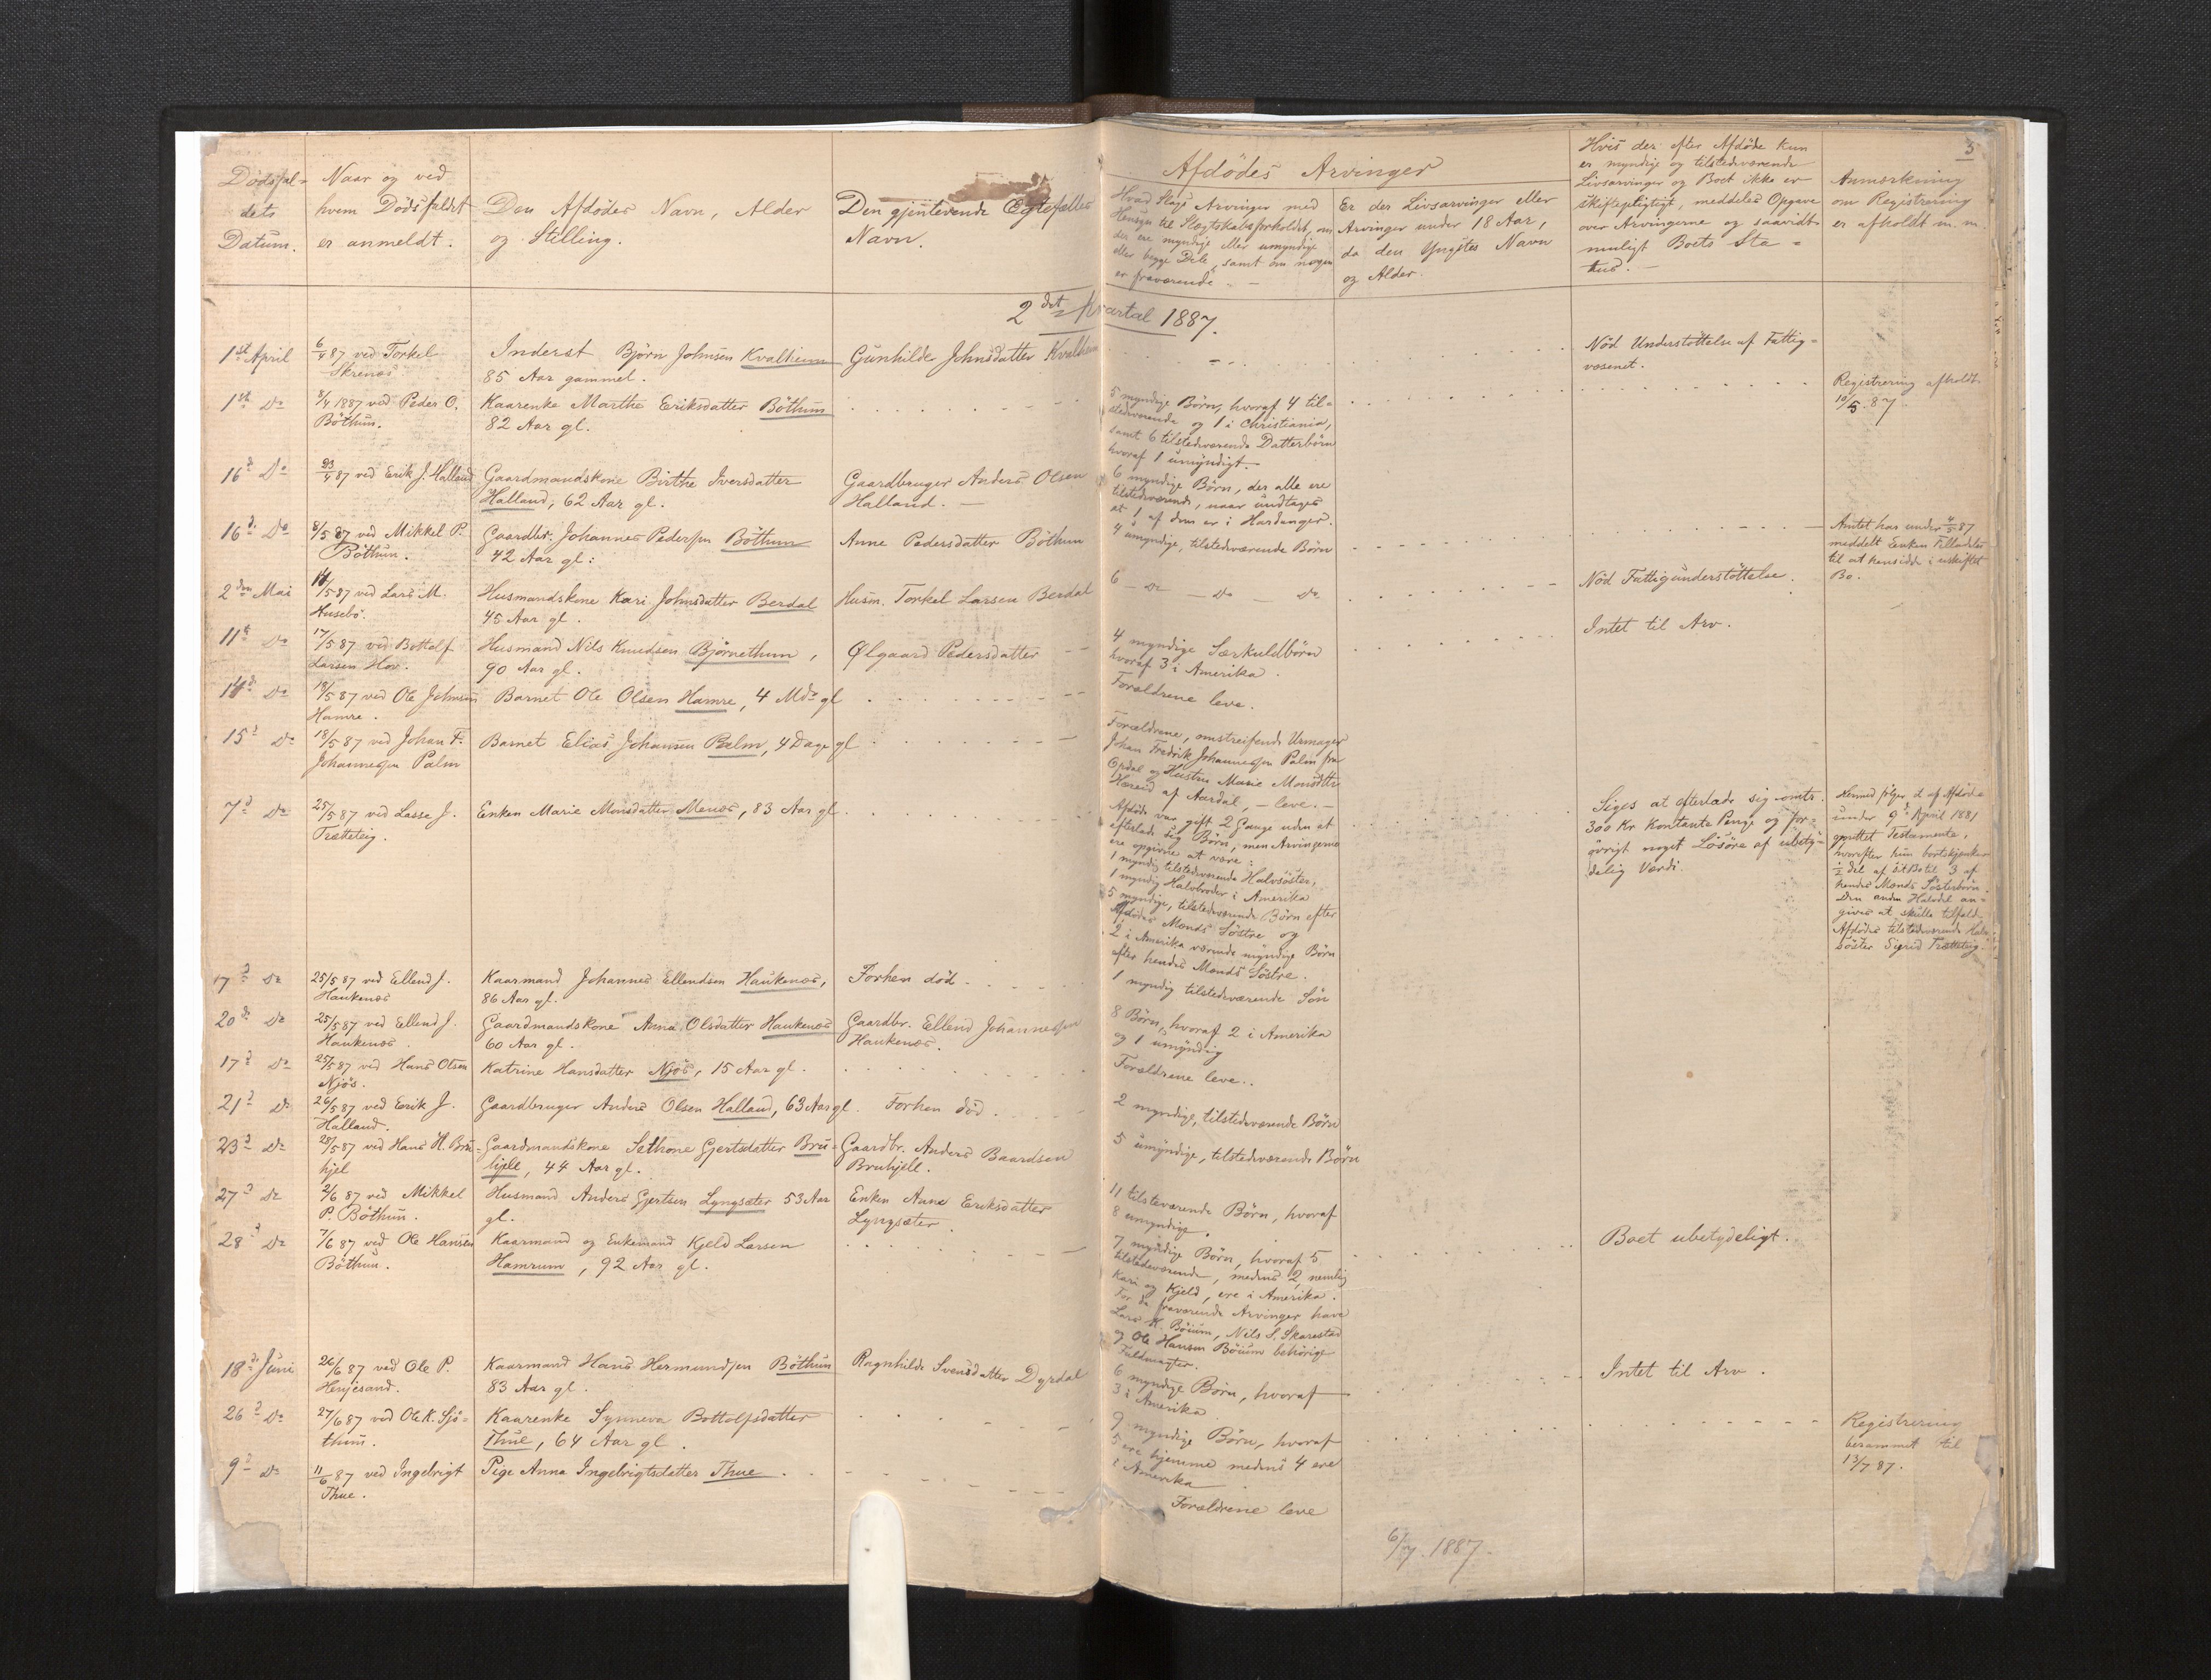 3
Dödsfal-
dets
Datum.
Naar og ved
hvem Dödsfaldet
er anmeldt.
Den Afdödes Navn, Alder
og Stilling.
Den gjenlevende Ægtefælles
Navn.
Afdödes Arvinger
Hvad Slags Arvinger med
Hensyn til Slægtskabsforholdet, om
der ere myndige eller umyndige
eller begge Dele, samt om nogen
er fraværende. -
Er der Livsarvinger eller
Arvinger under 18 Aar,
da den Yngstes Navn
og Alder.
Hvis der efter Afdöde kun
er myndige og tilstedeværende
Livsarvinger og Boet ikke er
skiftepligtigt, meddeles Opgave
over Arvingerne og saavidt
muligt Boets Sta=
tus. -
Anmærkning
om Registrering
er afholdt m. m.
2det Kvartal 1887.
1st April
6/4 87 ved Torkel
Skrenes
Inderst Björn Johnsen Kvalheim
85 Aar gammel.
Gunhilde Johnsdatter Kvalheim
Nöd Understöttelse af Fattig=
væsenet.
1st Do
8/4 1887 ved Peder O.
Böthun.
Kaarenke Marthe Eriksdatter Böthun
82 Aar gl.
5 myndige Börn, hvoraf 4 til=
stedeværende og 1 i Christiania,
samt 6 tilstedeværende Datterbörn
hvoraf 1 umyndigt.
Registrering afholdt
10/5. 87
16d Do
23/4 87 ved Erik J. Halland
Gaardmandskone Birthe Iversdatter
Halland, 62 Aar gl.
Gaardbruger Anders Olsen
Halland. -
6 myndige Börn, der alle ere
tilstedeværende, naar undtages
at 1 af dem er i Hardanger.
16d. Do
8/5 87 ved Mikkel P.
Böthun.
Gaardbr. Johannes Pedersen Böthun
42 Aar gl:
Anne Pedersdatter Böthun
4 umyndige, tilstedeværende Börn
Amtet har under 4/5 87
meddelt Enken Tilladelse
til at hensidde i uskiftet
Bo.
2den Mai
14/5 87 ved Lars M.
Husebö.
Husmandskone Kari Johnsdatter Berdal
45 Aar gl.
Husm. Torkel Larsen Berdal
6 - Do - Do - Do
Nöd Fattigunderstöttelse.
11te Do
17/5 87 ved Bottolf
Larsen Hov.
Husmand Nils Knudsen Björnethun,
90 Aar gl.
Ølgaard Pedersdatter
4 myndige Særkuldbörn
hvoraf 3 i Amerika.
Intet til Arv.
14d Do
18/5 87 ved Ole Johnsen
Hamre.
Barnet Ole Olsen Hamre, 4 Mdr gl
Forældrene leve.
15d Do
18/5 87 ved Johan F.
Johannesen Palm
Barnet Elias Johansen Palm, 4 Dage gl
Forældrene, omstreifende Urmager
Johan Fredrik Johannesen Palm fra
Opdal og Hustru Marie Monsdtr
Hæreid af Aardal, - leve. -
7d Do
25/5 87 ved Lasse J.
Trætteteig.
Enken Marie Monsdatter Menes, 83 Aar gl
Afdöde var gift 2 Gange uden at
efterlade sig Börn, men Arvingerne
ere opgivne at være:
1 myndig tilstedeværende Halvsöster,
1 myndig Halvbroder i Amerika
5 myndige, tilstedeværende Börn efter
Afdödes Mands Söstre og
2 i Amerika værende myndige Börn
efter hendes Mands Söstre.
Siges at efterlade sig omtr.
300 Kr kontante Penge og for=
övrigt noget Lösöre af ubety=
delig Værdi.
Hermed fölger et af Afdöde
under 9d April 1881
oprettet Testamente,
hvorefter hun bortskjenker
1/2 del af sit Bo til 3 af
hendes Mands Sösterbörn.
Den anden Halvdel an=
gives at skulle tilfalde
Afdödes tilstedeværende Halv=
söster Sigrid Trætteteig.
17d Do
25/5 87 ved Ellend J.
Haukenæs
Kaarmand Johannes Ellendsen Haukenæs,
86 Aar gl.
Forhen död.
1 myndig tilstedeværende Sön
20d. Do
25/5 87 ved Ellend J.
Haukenæs.
Gaardmandskone Anna Olsdatter Haukenæs
60 Aar gl.
Gaardbr. Ellend Johannesen
Haukenæs.
8 Börn, hvoraf 2 i Amerika
og 1 umyndig
17d Do
25/5 87 ved Hans Olsen
Njös.
Katrine Hansdatter Njös, 15 Aar gl.
Forældrene leve..
21d Do
26/5 87 ved Erik J.
Halland.
Gaardbruger Anders Olsen Halland, 63 Aar gl.
Forhen död.
2 myndige, tilstedeværende Börn
23d Do
28/5 87 ved Hans H. Bru=
hjel
Gaardmandskone Sethone Gjertsdatter Bru=
hjell, 44 Aar gl.
Gaardbr. Anders Baardsen
Bruhjell.
5 umyndige, tilstedeværende Börn
27d Do
2/6 87 ved Mikkel
P. Böthun.
Husmand Anders Gjertsen Lyngsæter 53 Aar
gl.
Enken Anne Eriksdatter
Lyngsæter.
11 tilsteværende Börn, hvoraf
8 umyndige.
28d Do
7/6 87 ved Ole Hansen
Böthun.
Kaarmand og Enkemand Kjeld Larsen
Hamrum, 92 Aar gl.
7 myndige Börn, hvoraf 5
tilstedeværende, medens 2, nemlig
Kari og Kjeld, ere i Amerika.
For de fraværende Arvinger have
Lars K. Böium, Nils S. Skarestad
og Ole Hansen Böium behörige
Fuldmagter.
Boet ubetydeligt.
18d Juni
26/6 87 ved Ole P.
Henjesand.
Kaarmand Hans Hermundsen Böthun
83 Aar gl.
Ragnhilde Svensdatter Dyrdal
6 myndige Börn, hvoraf
3 i Amerika
Intet til Arv.
26d Do
27/6 87 ved Ole K. Sjö=
thun.
Kaarenke Synneva Bottolfsdatter
Thue, 64 Aar gl.
9 myndige Börn, hvoraf
5 ere hjemme medens 4 ere
i Amerika
Registrering
berammet til
13/7 87.
9d Do
11/6 87 ved Ingebrigt
Thue.
Pige Anna Ingebrigtsdatter Thue.
Forældrene leve
6/7. 1887.